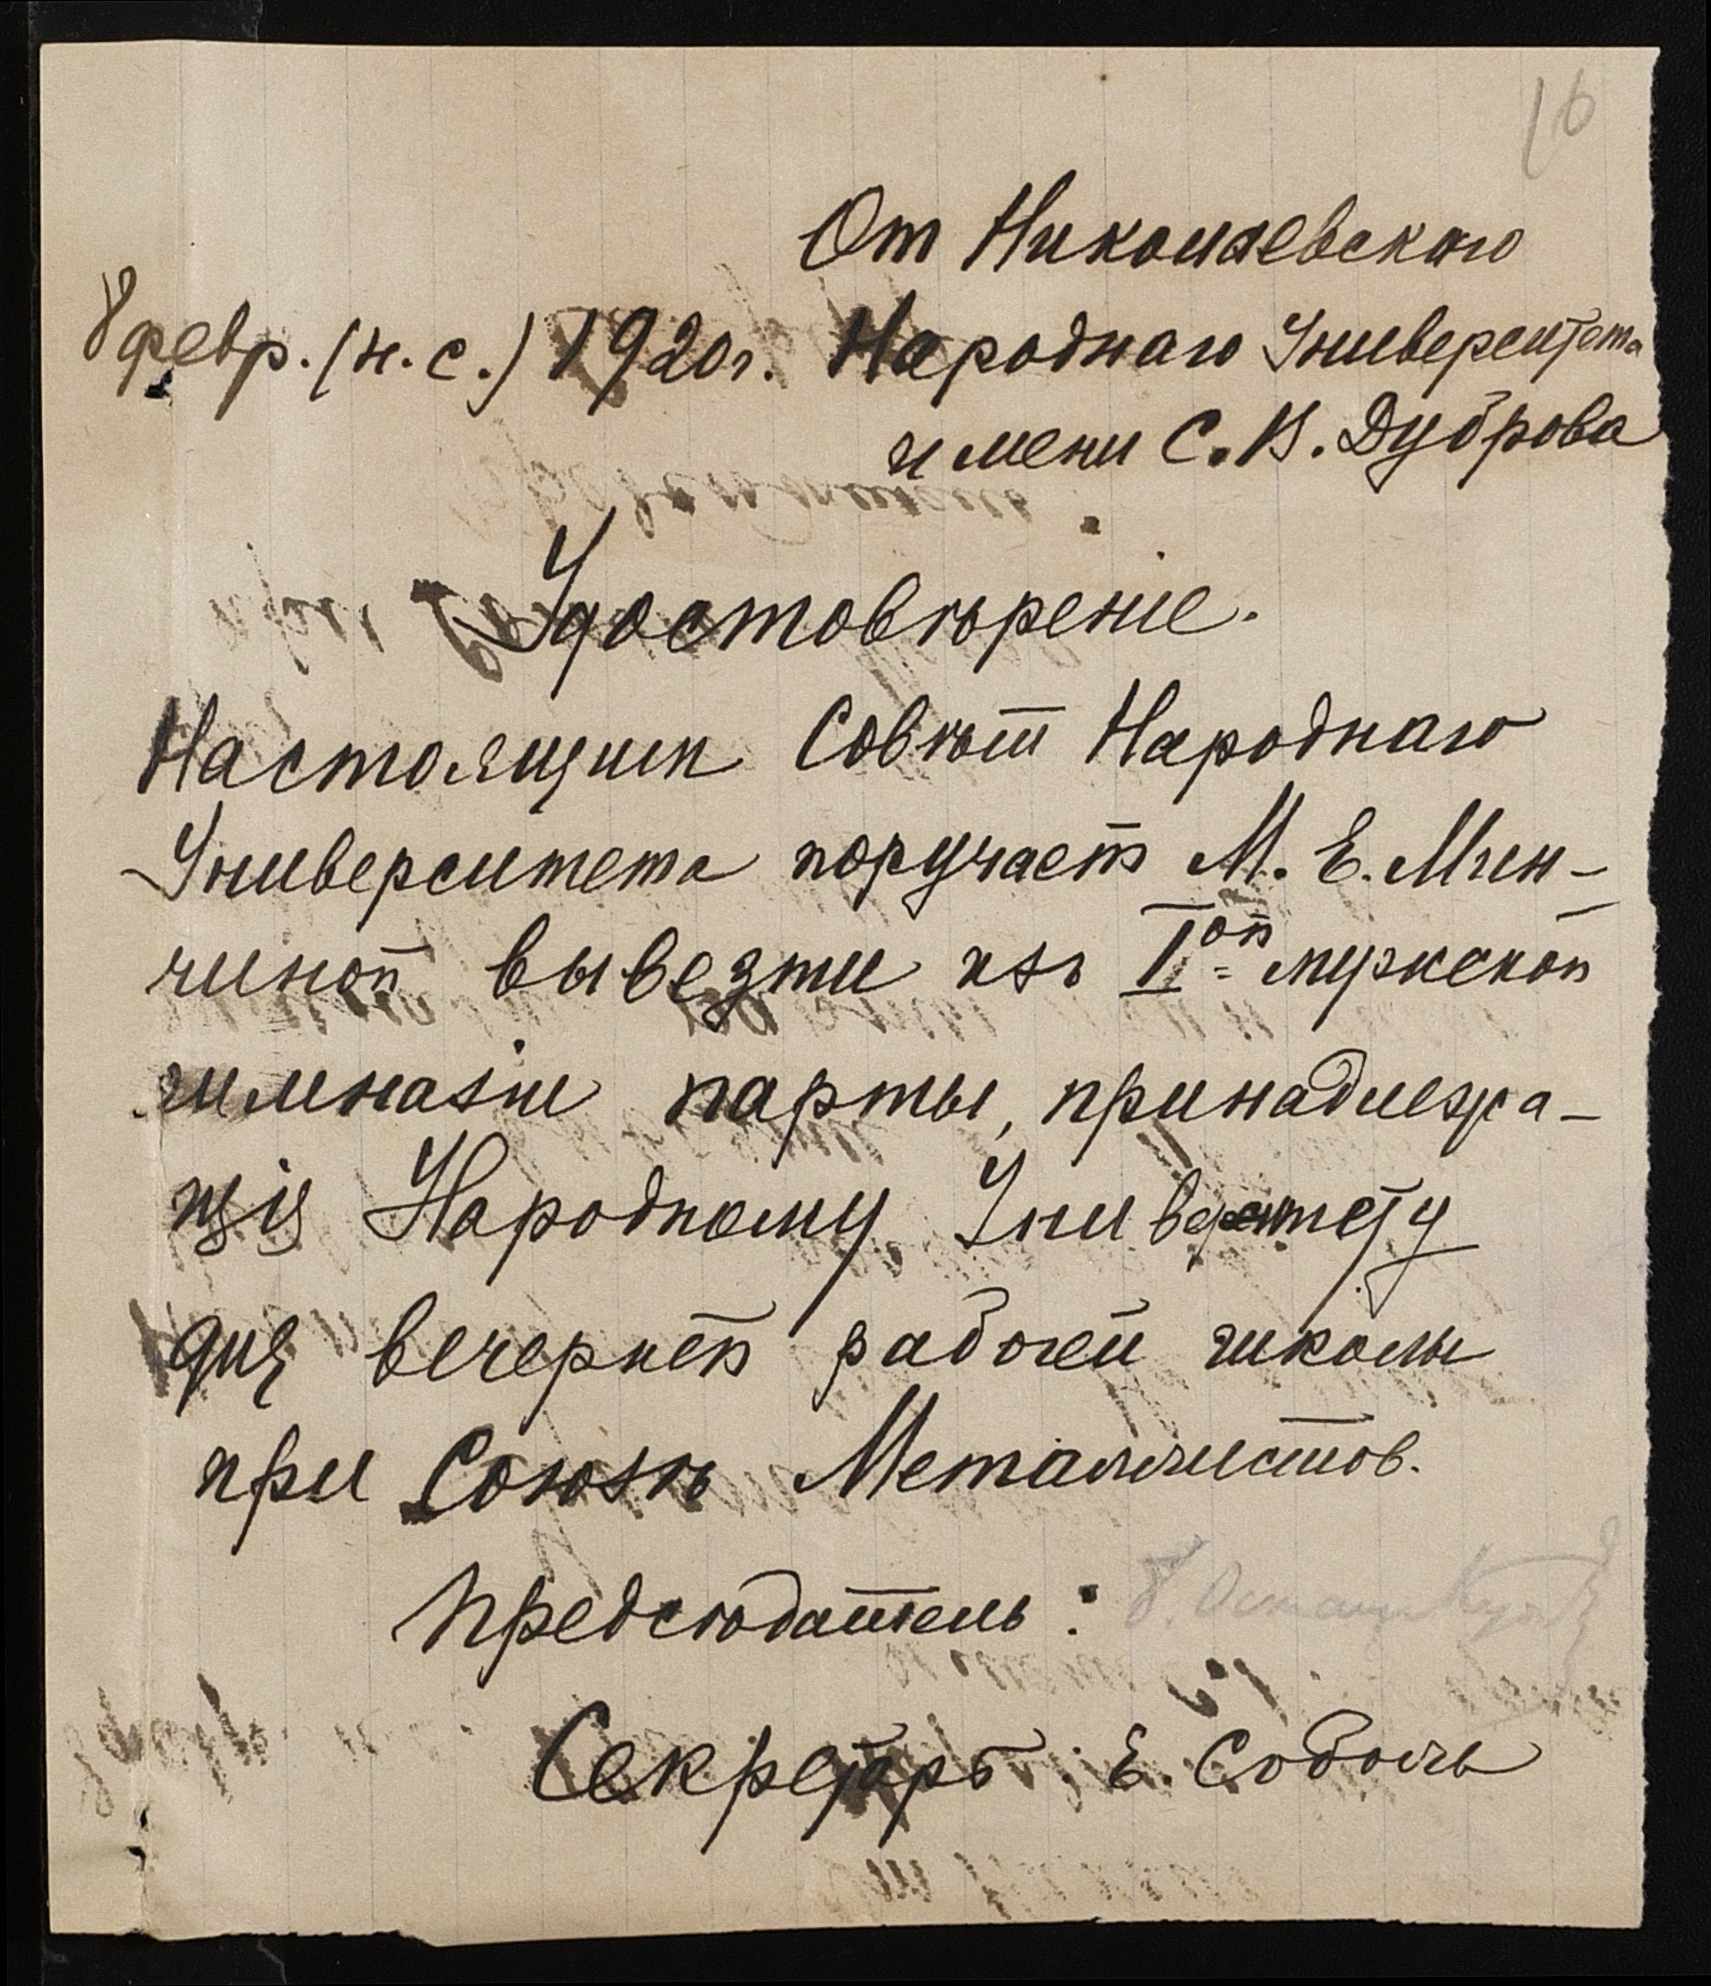 16
От Николаевскаго
8 февр. (н. с.) 1920 г. Народнаго Университета
имени С. В. Дуброва
Удостовѣреніе.
Настоящим Совѣт Народнаго
Университета поручает М. Е. Мин-
чиной вывезти изъ I ой мужской
гимназіи парты, принадлежа-
щія Народному Университету
для вечерней рабочей школы
при Союзѣ Металлистов.
Предсѣдатель:
Секретарь Е. Соболь